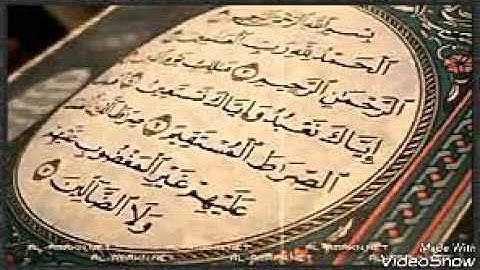 بِسْمِ اللَّهِ الرَّحْمَٰنِ الرَّحِيمِ
الْحَمْدُ لِلَّهِ رَبِّ الْعَٰلَمِينَ
الرَّحْمَٰنِ الرَّحِيمِ مَٰلِكِ يَوْمِ
إِيَّاكَ نَعْبُدُ وَإِيَّاكَ نَسْتَعِينُ
الصِّرَاطَ الْمُسْتَقِيمَ صِرَاطَ الَّذِينَ
عَلَيْهِمْ غَيْرِ الْمَغْضُوبِ عَلَيْهِمْ
وَلَا الضَّالِّينَ
Made With
VideoShow